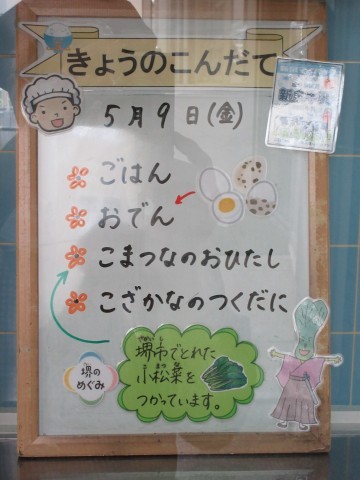 きょうのこんだて
5月9日(金)
ごはん
おでん
こまつなのおひたし
こざかなのつくだに
堺市でとれた
小松菜を
つかっています。
堺の
めぐみ